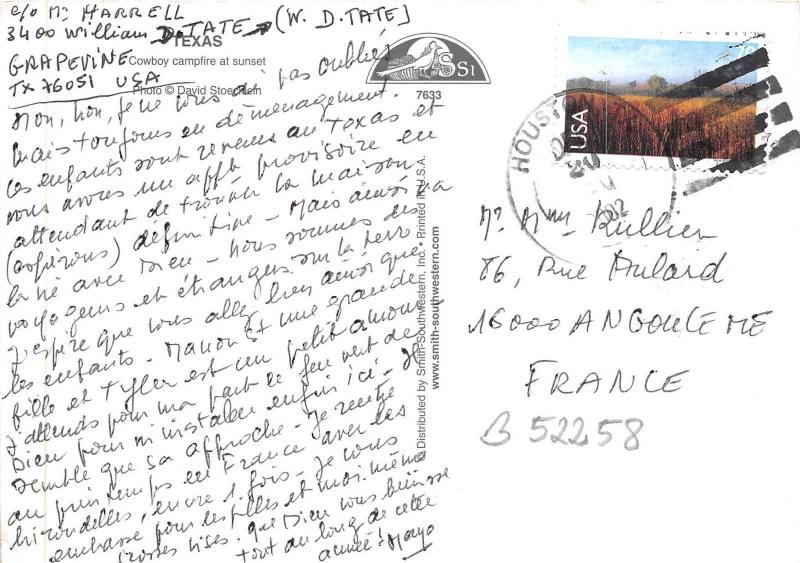 c/o Mr HARRELL
3400 William D. TATE → (W. D. TATE)
GRAPEVINE
TX 76051 USA
TEXAS
Cowboy campfire at sunset
Photo © David Stoecklein
Non, non, je ne vous ai pas oubliés
mais toujours en déménagement.
Les enfants sont revenus au Texas et
nous avons un appt provisoire en
attendant de trouver la maison
(espérons) définitive - Mais ainsi va
la vie avec Dieu - Nous sommes des
voyageurs et étrangers sur la terre
J'espère que vous allez bien ainsi que
les enfants - Manon est une grande
fille et Tyller est un petit amour
J'attends pour ma part le feu vert de
Dieu pour m'installer enfin ici - Il
semble que ça approche - Je rentre
au printemps en France avec les
hirondelles, encore 1 fois - Je vous
embrasse pour les filles et moi même
Grosses bises. Que Dieu vous bénisse
tout au long de cette
année! Mayo
SSI
7633
© Distributed by Smith-Southwestern, Inc. • Printed in U.S.A.
www.smith-southwestern.com
USA
HOUSTO
Mr Mme Rullier
86, Rue Aulard
16000 ANGOULEME
FRANCE
B 52258